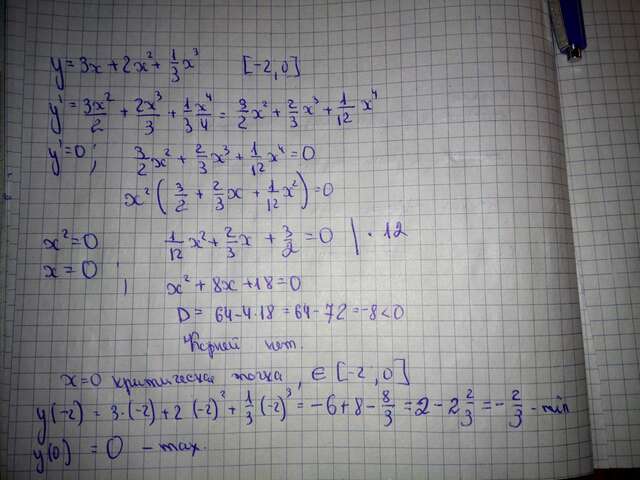 y = 3x + 2x² + 1/3 x³ [-2; 0]
y' = 3x²/2 + 2x³/3 + 1/3 x⁴/4 = 3/2 x² + 2/3 x³ + 1/12 x⁴
y' = 0; 3/2 x² + 2/3 x³ + 1/12 x⁴ = 0
x² (3/2 + 2/3 x + 1/12 x²) = 0
x² = 0 1/12 x² + 2/3 x + 3/2 = 0 | · 12
x = 0 x² + 8x + 18 = 0
D = 64 - 4·18 = 64 - 72 = -8 < 0
корней нет.
x = 0 критическа точка, ∈ [-2; 0]
y(-2) = 3·(-2) + 2(-2)² + 1/3 (-2)³ = -6 + 8 - 8/3 = 2 - 2 2/3 = - 2/3 - min
y(0) = 0 - max.